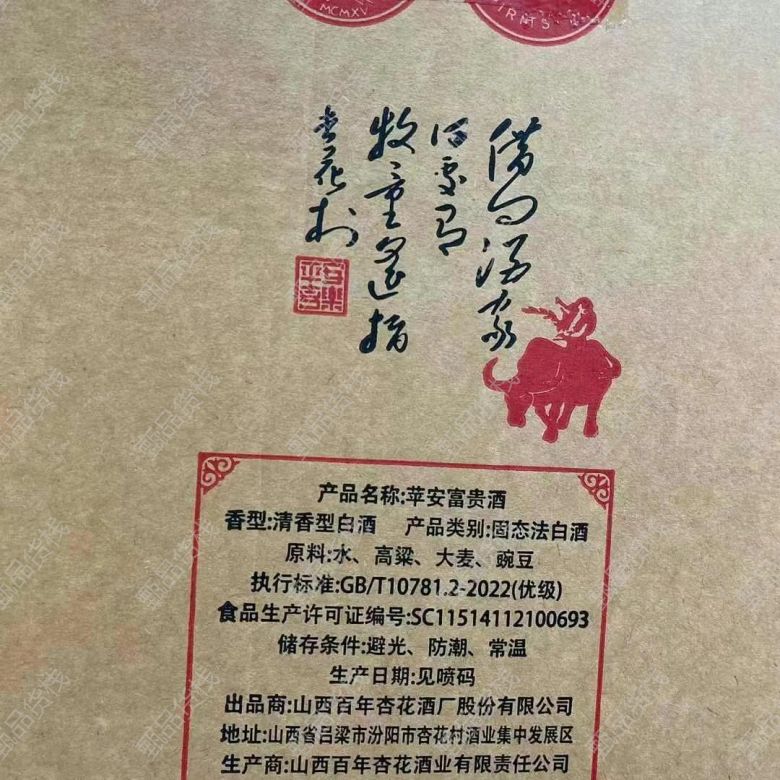 MCMXV
借问酒家
何处有
牧童遥指
杏花村
产品名称:苹安富贵酒
香型:清香型白酒 产品类别:固态法白酒
原料:水、高粱、大麦、豌豆
执行标准:GB/T10781.2-2022(优级)
食品生产许可证编号:SC11514112100693
储存条件:避光、防潮、常温
生产日期:见喷码
出品商:山西百年杏花酒厂股份有限公司
地址:山西省吕梁市汾阳市杏花村酒业集中发展区
生产商:山西百年杏花酒业有限责任公司